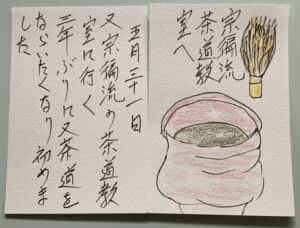 宗徧流
茶道教
室へ
五月三十一日
又宗徧流の茶道教
室に行く
三年ぶりに又茶道を
ならいたくなり初めま
した